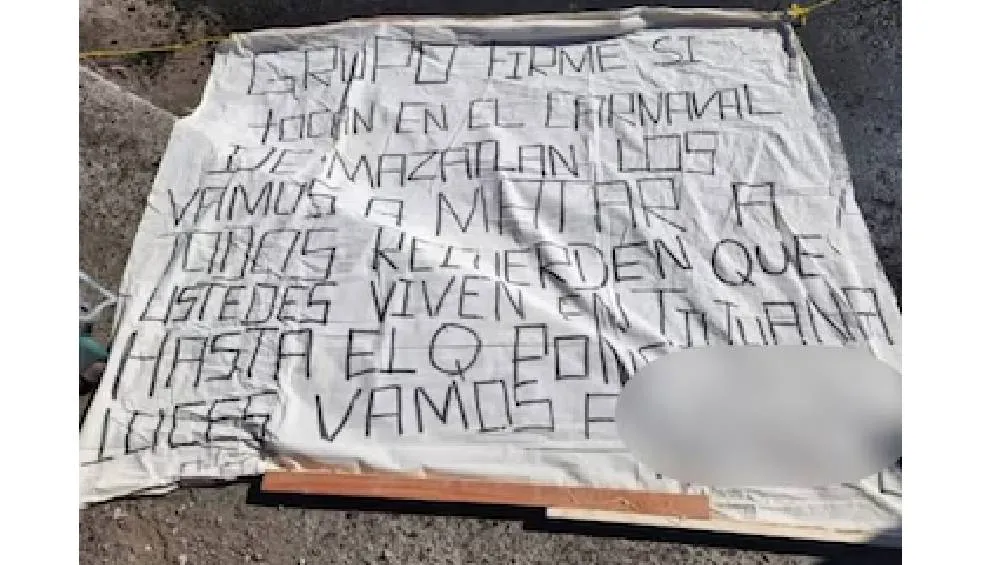 GRUPO FIRME SI
TOCAN EN EL CARNAVAL
DE MAZATLAN LOS
VAMOS A MATAR A
TODOS RECUERDEN QUE
USTEDES VIVEN EN TIJUANA
HASTA EL Q PONG
VAMOS A